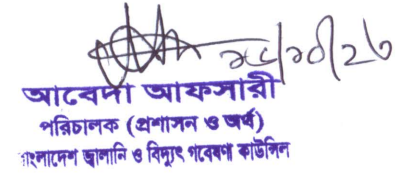 আবেদা আফসারী
পরিচালক (প্রশাসন ও অর্থ)
বাংলাদেশ জ্বালানি ও বিদ্যুৎ গবেষণা কাউন্সিল